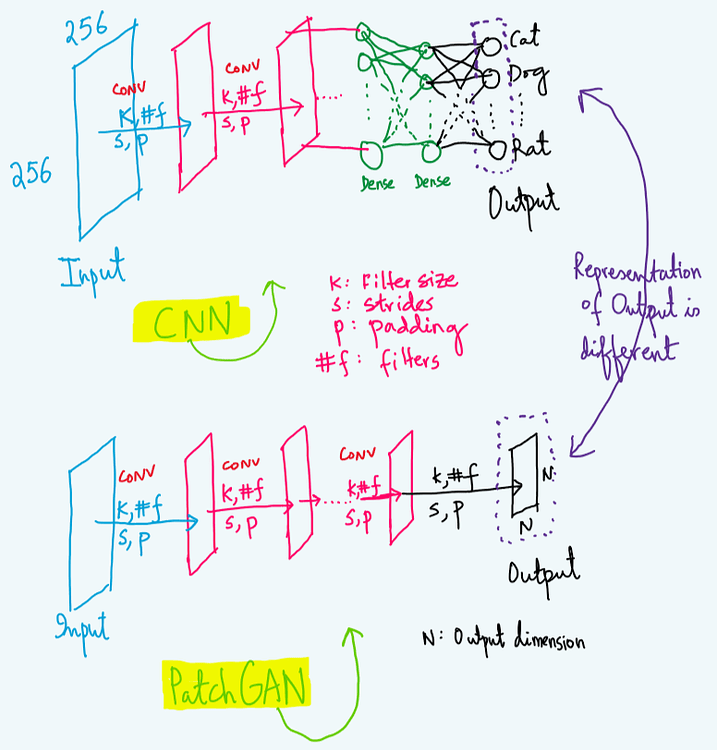 256
256
Input
CONV
K,#f
s, p
CONV
K,#f
s, p
......
Dense
Dense
Cat
Dog
Rat
Output
CNN
K: Filter size
s: strides
p: padding
#f: filters
Representation
of Output is
different
Input
CONV
K,#f
s, p
CONV
K,#f
s, p
......
CONV
K,#f
s, p
K,#f
s, p
N
N
Output
N: Output dimension
PatchGAN